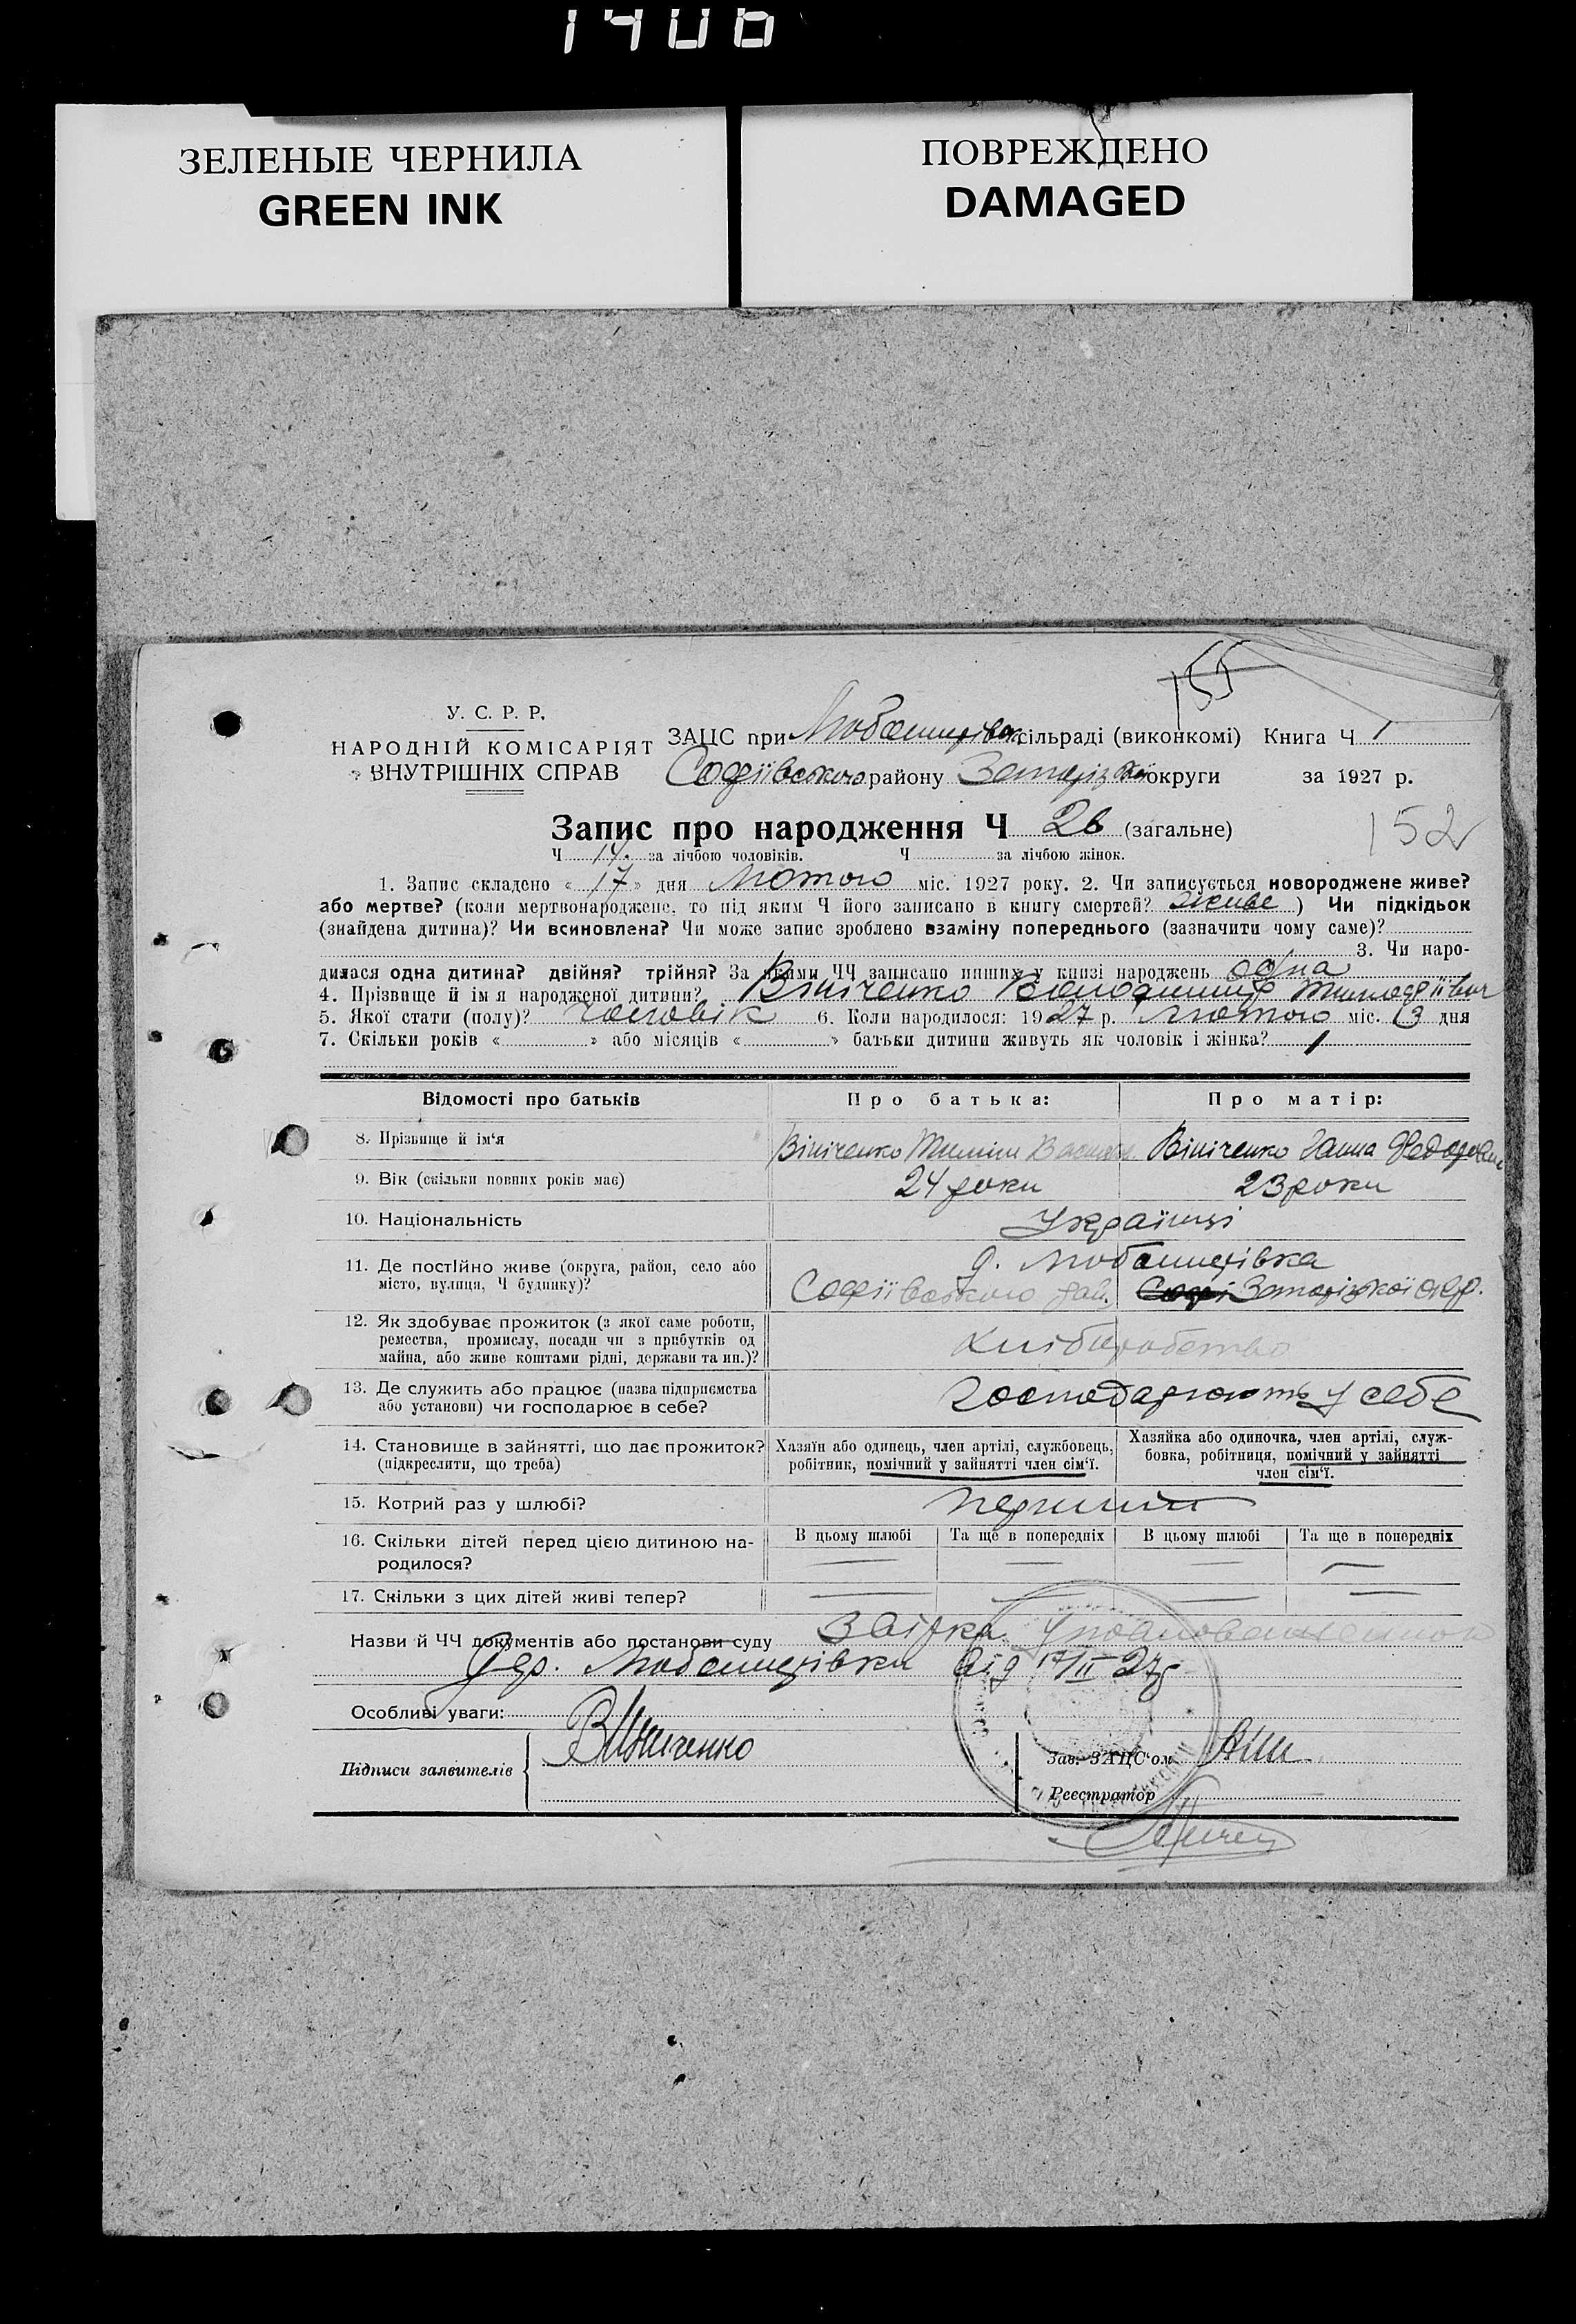 1406
ЗЕЛЕНЫЕ ЧЕРНИЛА
GREEN INK
ПОВРЕЖДЕНО
DAMAGED
155
У. С. Р. Р.
НАРОДНІЙ КОМІСАРІЯТ
ВНУТРІШНІХ СПРАВ
ЗАЦС при сільраді (виконкомі) Книга Ч 1
Софіївського району Запорізької округи за 1927 р.
Запис про народження Ч 26 (загальне)
152
Ч 14. за лічбою чоловіків. Ч за лічбою жінок.
1. Запис складено « 17 » дня Лютого міс. 1927 року. 2. Чи записується новороджене живе?
або мертве? (коли мертвонароджене, то під яким Ч його записано в книгу смертей? живе ) Чи підкідьок
(знайдена дитина)? Чи всиновлена? Чи може запис зроблено взаміну попереднього (зазначити чому саме)?
3. Чи наро-
дилася одна дитина? двійня? трійня? За якими ЧЧ записано инших у книзі народжень одна
4. Прізвище й ім я народженої дитини? Вініченко Володимир
5. Якої стати (полу)? чоловік 6. Коли народилося: 1927 р. Лютого міс. 13 дня
7. Скільки років « » або місяців « » батьки дитини живуть як чоловік і жінка? 1
Відомості про батьків Про батька: Про матір:
8. Прізвище й ім‘я Вініченко Вініченко Ганна
9. Вік (скільки повних років має) 24 роки 23 роки
10. Національність Українці
11. Де постійно живе (округа, район, село або
місто, вулиця, Ч будинку)?
Софіївського рай. Запорізької окр.
12. Як здобуває прожиток (з якої саме роботи,
ремества, промислу, посади чи з прибутків од
майна, або живе коштами рідні, держави та ин.)?
Хліборобство
13. Де служить або працює (назва підприємства
або установи) чи господарює в себе?
господарюють у себе
14. Становище в зайнятті, що дає прожиток?
(підкреслити, що треба)
Хазяїн або одинець, член артілі, службовець,
робітник, помічний у зайнятті член сім‘ї.
Хазяйка або одиночка, член артілі, служ-
бовка, робітниця, помічний у зайнятті
член сім‘ї.
15. Котрий раз у шлюбі? перший
16. Скільки дітей перед цією дитиною на-
родилося?
В цьому шлюбі Та ще в попередніх В цьому шлюбі Та ще в попередніх
— — — —
17. Скільки з цих дітей живі тепер? — — — —
Назви й ЧЧ документів або постанови суду
від 17/II 27 р
Особливі уваги:
Підписи заявителів
Зав. ЗАЦС‘ом
Реєстратор